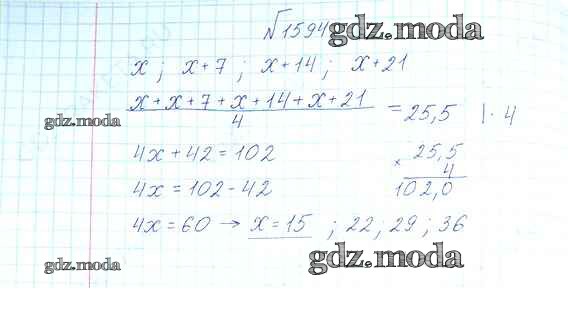 √1594 gdz.moda
x ; x+7 ; x+14 ; x+21
x+x+7+x+14+x+21
4
= 25,5 |·4
gdz.moda
4x+42=102
× 25,5
4
4x = 102-42
102,0
4x = 60 → x=15 ; 22; 29; 36
gdz.moda
gdz.moda